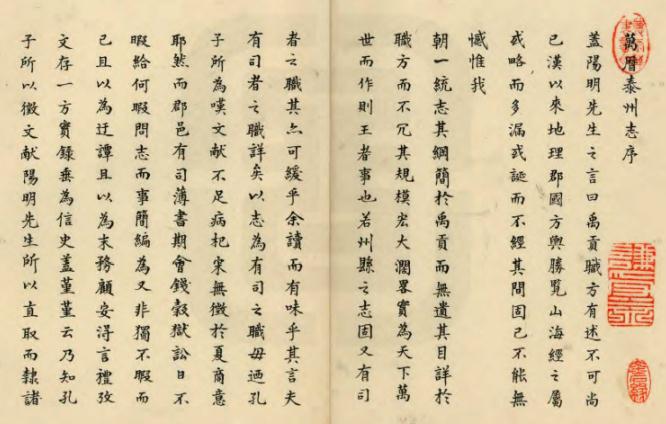 萬曆泰州志序
蓋陽明先生之言曰禹貢職方有述不可尚
已漢以來地理郡國方輿勝覽山海經之屬
或略而多漏或誕而不經其間固已不能無
憾惟我
朝一統志其綱簡於禹貢而無遺其目詳於
職方而不冗其規模宏大濶畧實為天下萬
世而作則王者事也若州縣之志固又有司
者之職其亦可緩乎余讀而有味乎其言夫
有司者之職詳矣以志為有司之職毋迺孔
子所為嘆文献不足病杞宋無徴於夏商意
耶然而郡邑有司薄書期會錢穀獄訟日不
暇給何暇問志而事簡編為又非獨不暇而
已且以為迂譚且以為末務顧安得言禮攷
文存一方實録垂為信史蓋堇堇云乃知孔
子所以徴文献陽明先生所以直取而隸諸